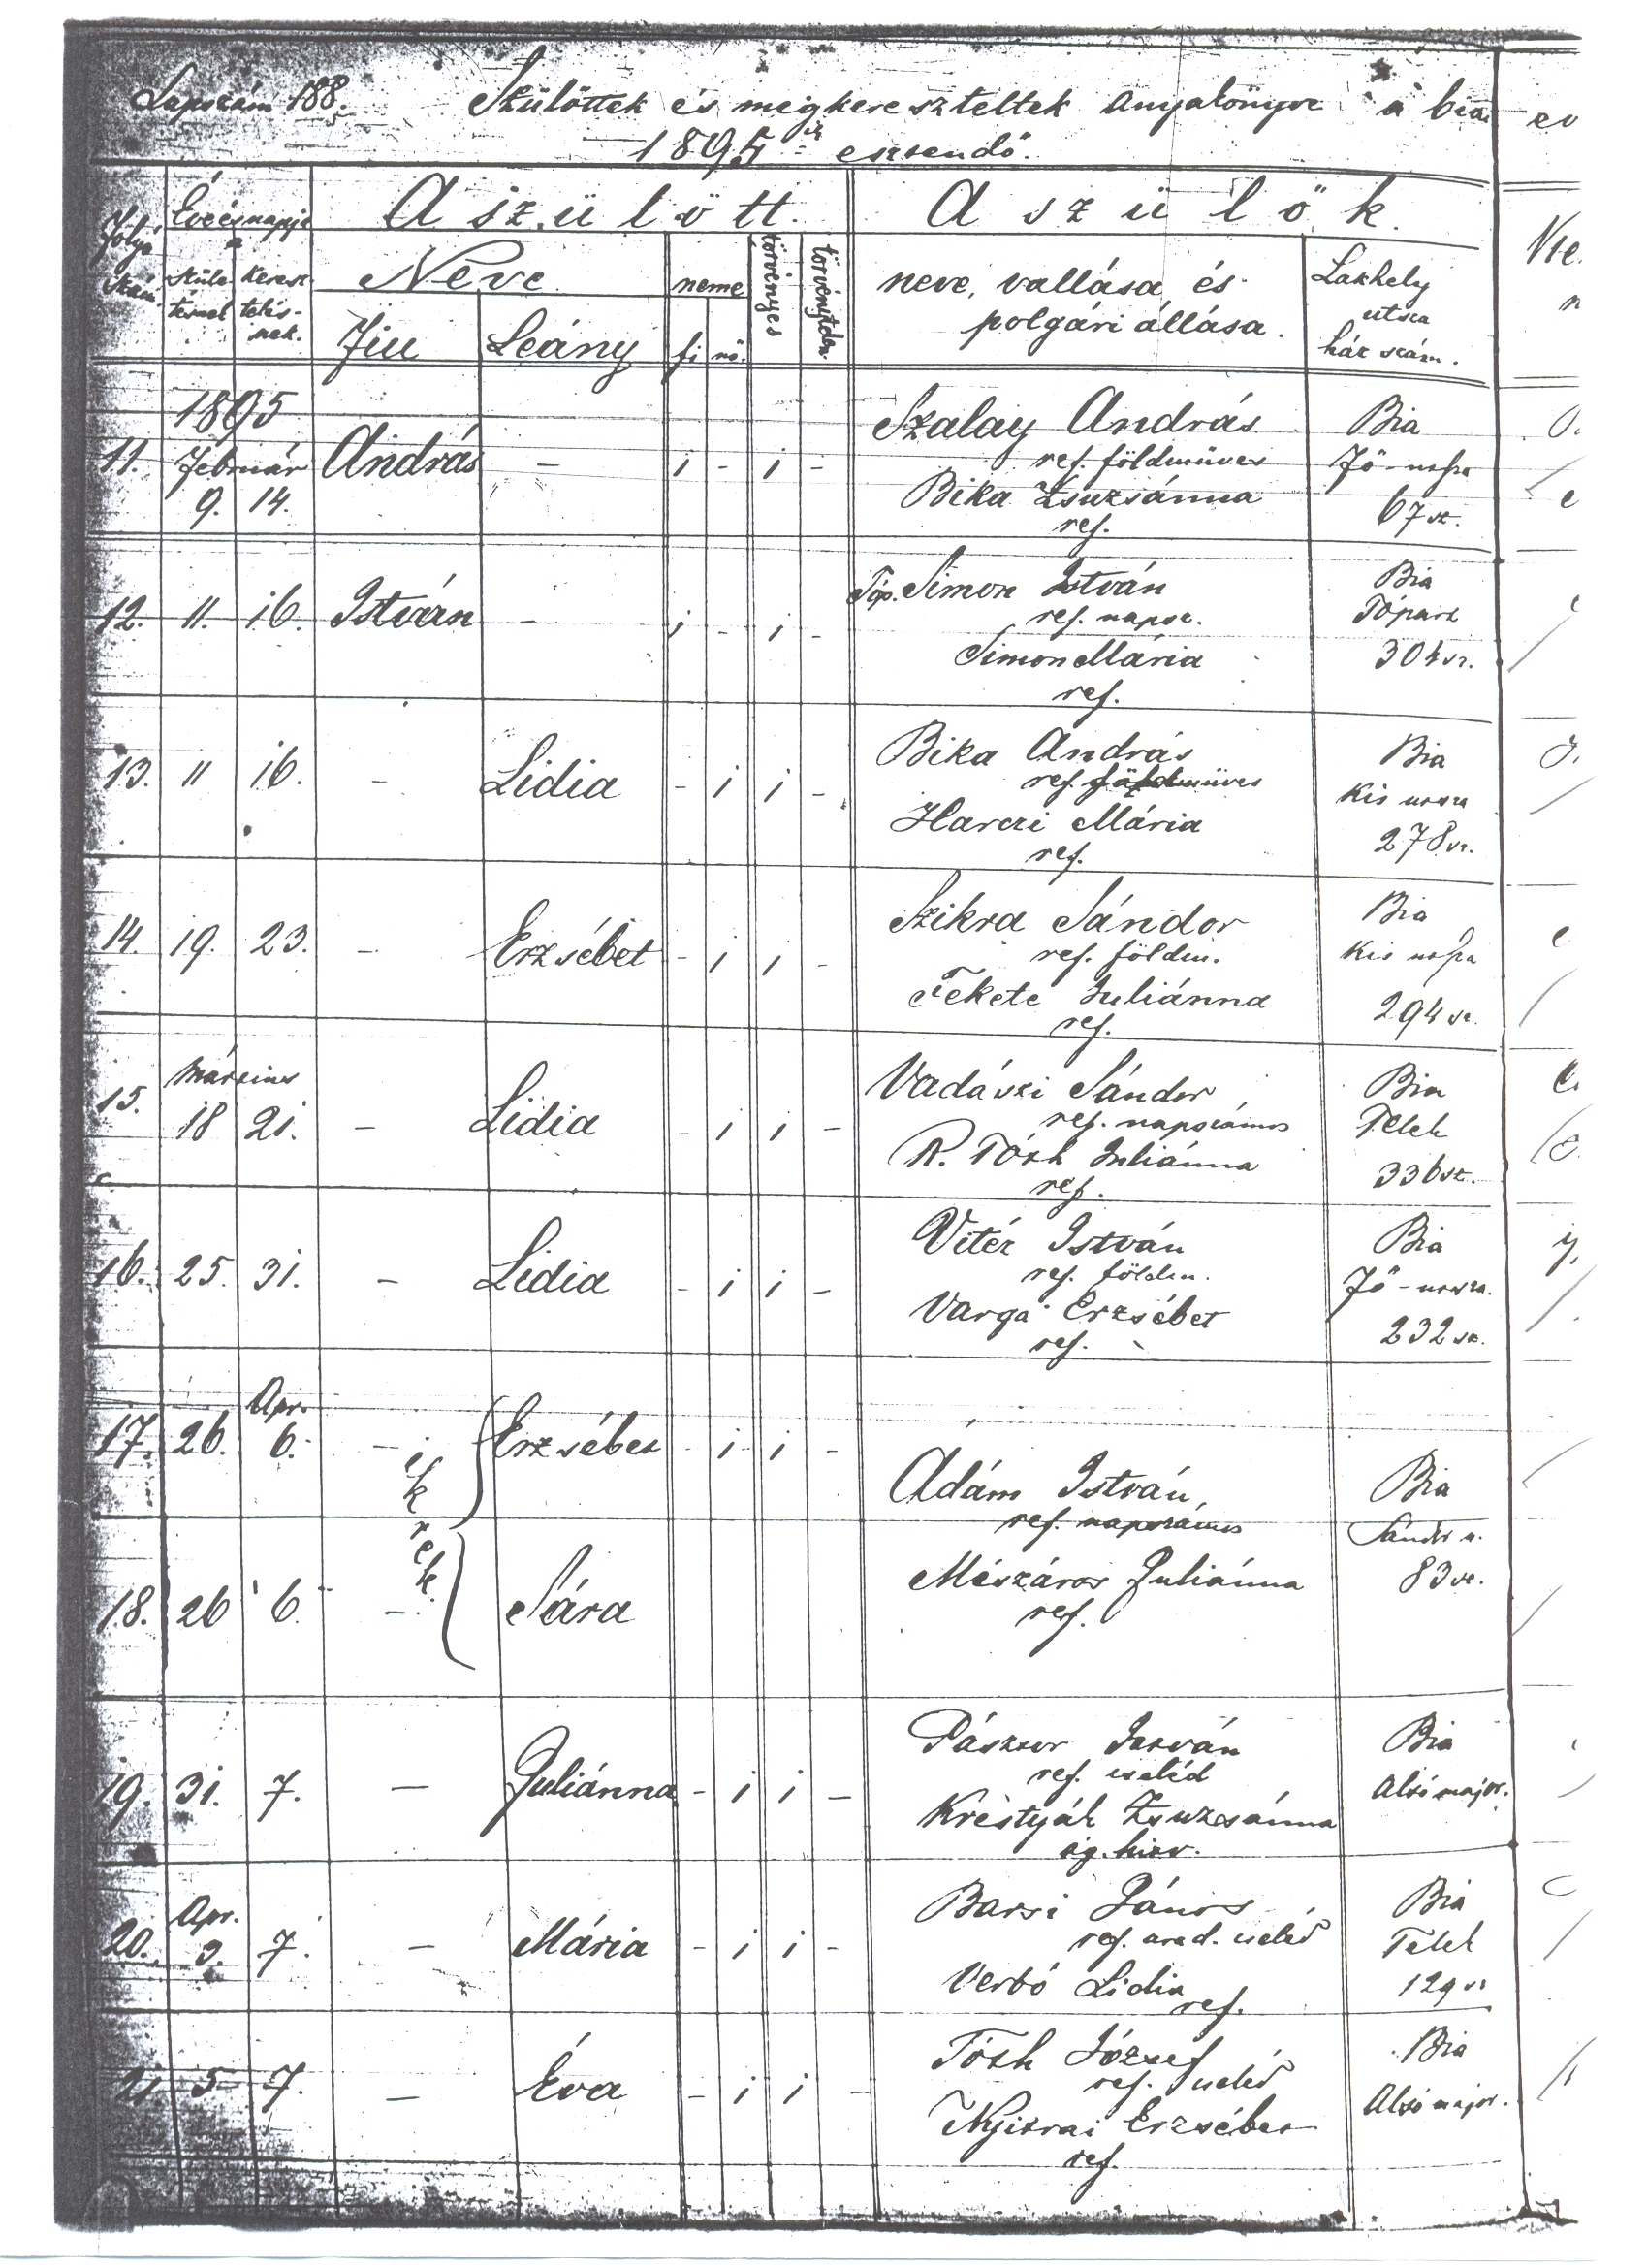 Lapszám 188. Szülöttek és megkereszteltek anyakönyve a biai
1895 ik esztendő.
Folyó szám
Év és napja a
születésnek
keresztelésnek.
A szülött.
Neve
Fiu
Leány
neme
fi nő.
törvényes
törvénytelen.
A szülők.
neve, vallása és
polgári állása.
Lakhely
utsza
ház szám.
1895
11. Február András – i - i - Szalay András Bia
9. 14. ref. földmüves Fő-utsza
Bika Zsuzsánna 67 sz.
ref.
12. 11. 16. István - i - i - Tóp. Simon István Bia
ref. napsz. Tópart
Simon Mária 304 sz.
ref.
13. 11 16. - Lidia - i i - Bika András Bia
ref. földmüves Kis utsza
Harczi Mária 278 sz.
ref.
14. 19. 23. - Erzsébet - i i - Szikra Sándor Bia
ref. földm. Kis utsza
Fekete Juliánna 294 sz.
ref.
Márczius
15. 18 21. - Lidia - i i - Vadászi Sándor Bia
ref. napszámos Telek
R. Tóth Juliánna 336 sz.
ref.
16. 25. 31. - Lidia - i i - Vitéz István Bia
ref. földm. Fő-utsza.
Varga Erzsébet 232 sz.
ref.
Apr.
17. 26. 6. - Erzsébet - i i -
ikrek.
Ádám István Bia
ref. napszámos Sándor u.
Mészáros Juliánna 83 sz.
ref.
18. 26 6. - Sára
19. 31. 7. - Juliánna - i i - Pásztor István Bia
ref. cseléd Alsó major.
Krestyák Zsuzsánna
ág. hitv.
Apr.
20. 3. 7. - Mária - i i - Barsi János Bia
ref. urad. cseléd Telek
Verbó Lidia 129 sz
ref.
21 5 7. - Éva - i i - Tóth József Bia
ref. cseléd Alsó major.
Nyitrai Erzsébet
ref.